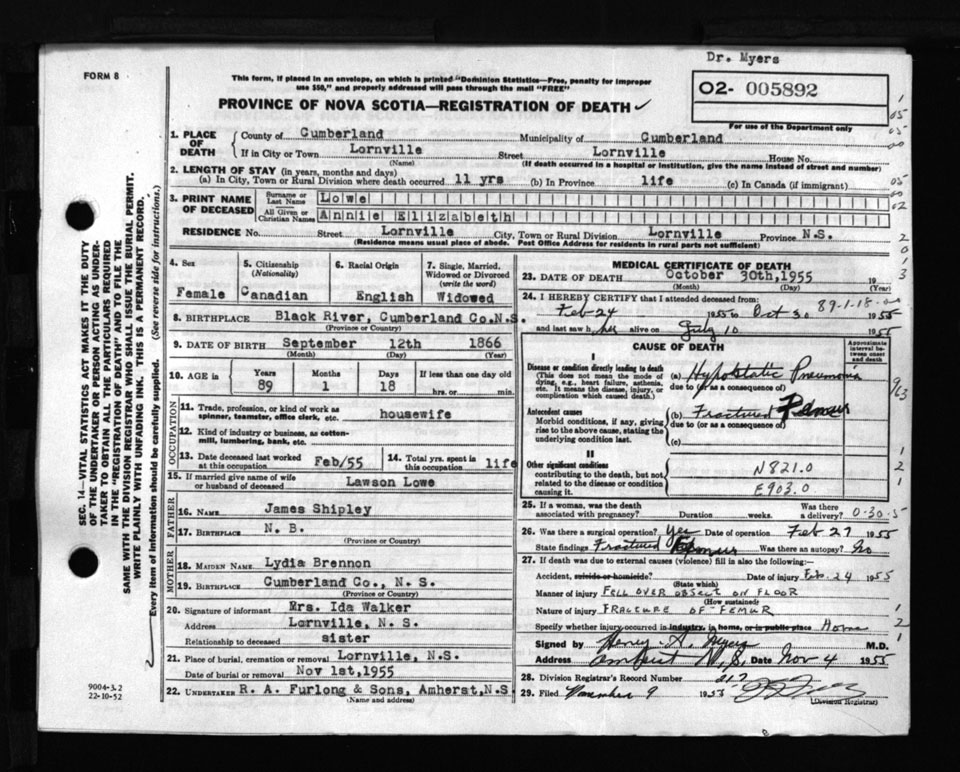 Dr. Myers
FORM 8
This form, if placed in an envelope, on which is printed "Dominion Statistics—Free, penalty for improper
use $50," and properly addressed will pass through the mail "FREE"
O2- 005892
PROVINCE OF NOVA SCOTIA—REGISTRATION OF DEATH ✓
For use of the Department only
1. PLACE OF DEATH County of Cumberland Municipality of Cumberland
If in City or Town Lornville Street Lornville House No.
(Name) (If death occurred in a hospital or institution, give the name instead of street and number)
2. LENGTH OF STAY (in years, months and days)
(a) In City, Town or Rural Division where death occurred 11 yrs (b) In Province life (c) In Canada (if immigrant)
3. PRINT NAME OF DECEASED Surname or Last Name Lowe
All Given or Christian Names Annie Elizabeth
RESIDENCE No. Street Lornville City, Town or Rural Division Lornville Province N.S.
(Residence means usual place of abode. Post Office Address for residents in rural parts not sufficient)
4. Sex Female
5. Citizenship (Nationality) Canadian
6. Racial Origin English
7. Single, Married, Widowed or Divorced (write the word) Widowed
8. BIRTHPLACE Black River, Cumberland Co.N.S.
(Province or Country)
9. DATE OF BIRTH September 12th 1866
(Month) (Day) (Year)
10. AGE in Years Months Days If less than one day old
89 1 18 hrs. or min.
OCCUPATION
11. Trade, profession, or kind of work as spinner, teamster, office clerk, etc. housewife
12. Kind of industry or business, as cotton-mill, lumbering, bank, etc.
13. Date deceased last worked at this occupation Feb/55
14. Total yrs. spent in this occupation life
15. If married give name of wife or husband of deceased Lawson Lowe
FATHER
16. NAME James Shipley
17. BIRTHPLACE N. B.
(Province or Country)
MOTHER
18. MAIDEN NAME Lydia Brennon
19. BIRTHPLACE Cumberland Co., N. S.
(Province or Country)
20. Signature of informant Mrs. Ida Walker
Address Lornville, N. S.
Relationship to deceased sister
21. Place of burial, cremation or removal Lornville, N.S.
Date of burial or removal Nov 1st,1955
22. UNDERTAKER R. A. Furlong & Sons, Amherst,N.S
(Name and address)
MEDICAL CERTIFICATE OF DEATH
23. DATE OF DEATH October 30th,1955 19
(Month) (Day) (Year)
89-1-18
24. I HEREBY CERTIFY that I attended deceased from:
Feb-24 1955 to Oct 30 1955
and last saw her alive on July 10 1955
CAUSE OF DEATH
Approximate interval between onset and death
I
Disease or condition directly leading to death (a) Hypostatic Pneumonia
(This does not mean the mode of dying, e.g., heart failure, asthenia, etc. It means the disease, injury, or complication which caused death.)
due to (or as a consequence of)
Antecedent causes (b) Fractured Femur
Morbid conditions, if any, giving rise to the above cause, stating the underlying condition last.
due to (or as a consequence of)
(c)
II
Other significant conditions
contributing to the death, but not related to the disease or condition causing it.
N821.0
E903.0
25. If a woman, was the death associated with pregnancy? Duration weeks. Was there a delivery? 0-30-5
26. Was there a surgical operation? Yes Date of operation Feb 27 1955
State findings Fractured Femur Was there an autopsy? No
27. If death was due to external causes (violence) fill in also the following:
Accident, suicide or homicide? Date of injury Feb. 24 1955
(State which)
Manner of injury FELL OVER OBJECT ON FLOOR
(How sustained)
Nature of injury FRACTURE OF FEMUR
Specify whether injury occurred in industry, in home, or in public place Home
Signed by Henry A. Myers M.D.
Address Amherst N.S. Date Nov 4 1955
28. Division Registrar's Record Number 217
29. Filed November 9 1955
(Division Registrar)
SEC. 14—VITAL STATISTICS ACT MAKES IT THE DUTY
OF THE UNDERTAKER OR PERSON ACTING AS UNDER-
TAKER TO OBTAIN ALL THE PARTICULARS REQUIRED
IN THE "REGISTRATION OF DEATH" AND TO FILE THE
SAME WITH THE DIVISION REGISTRAR WHO SHALL ISSUE THE BURIAL PERMIT.
WRITE PLAINLY WITH UNFADING INK. THIS IS A PERMANENT RECORD.
Every item of information should be carefully supplied. (See reverse side for instructions.)
9004-3.2
22-10-52